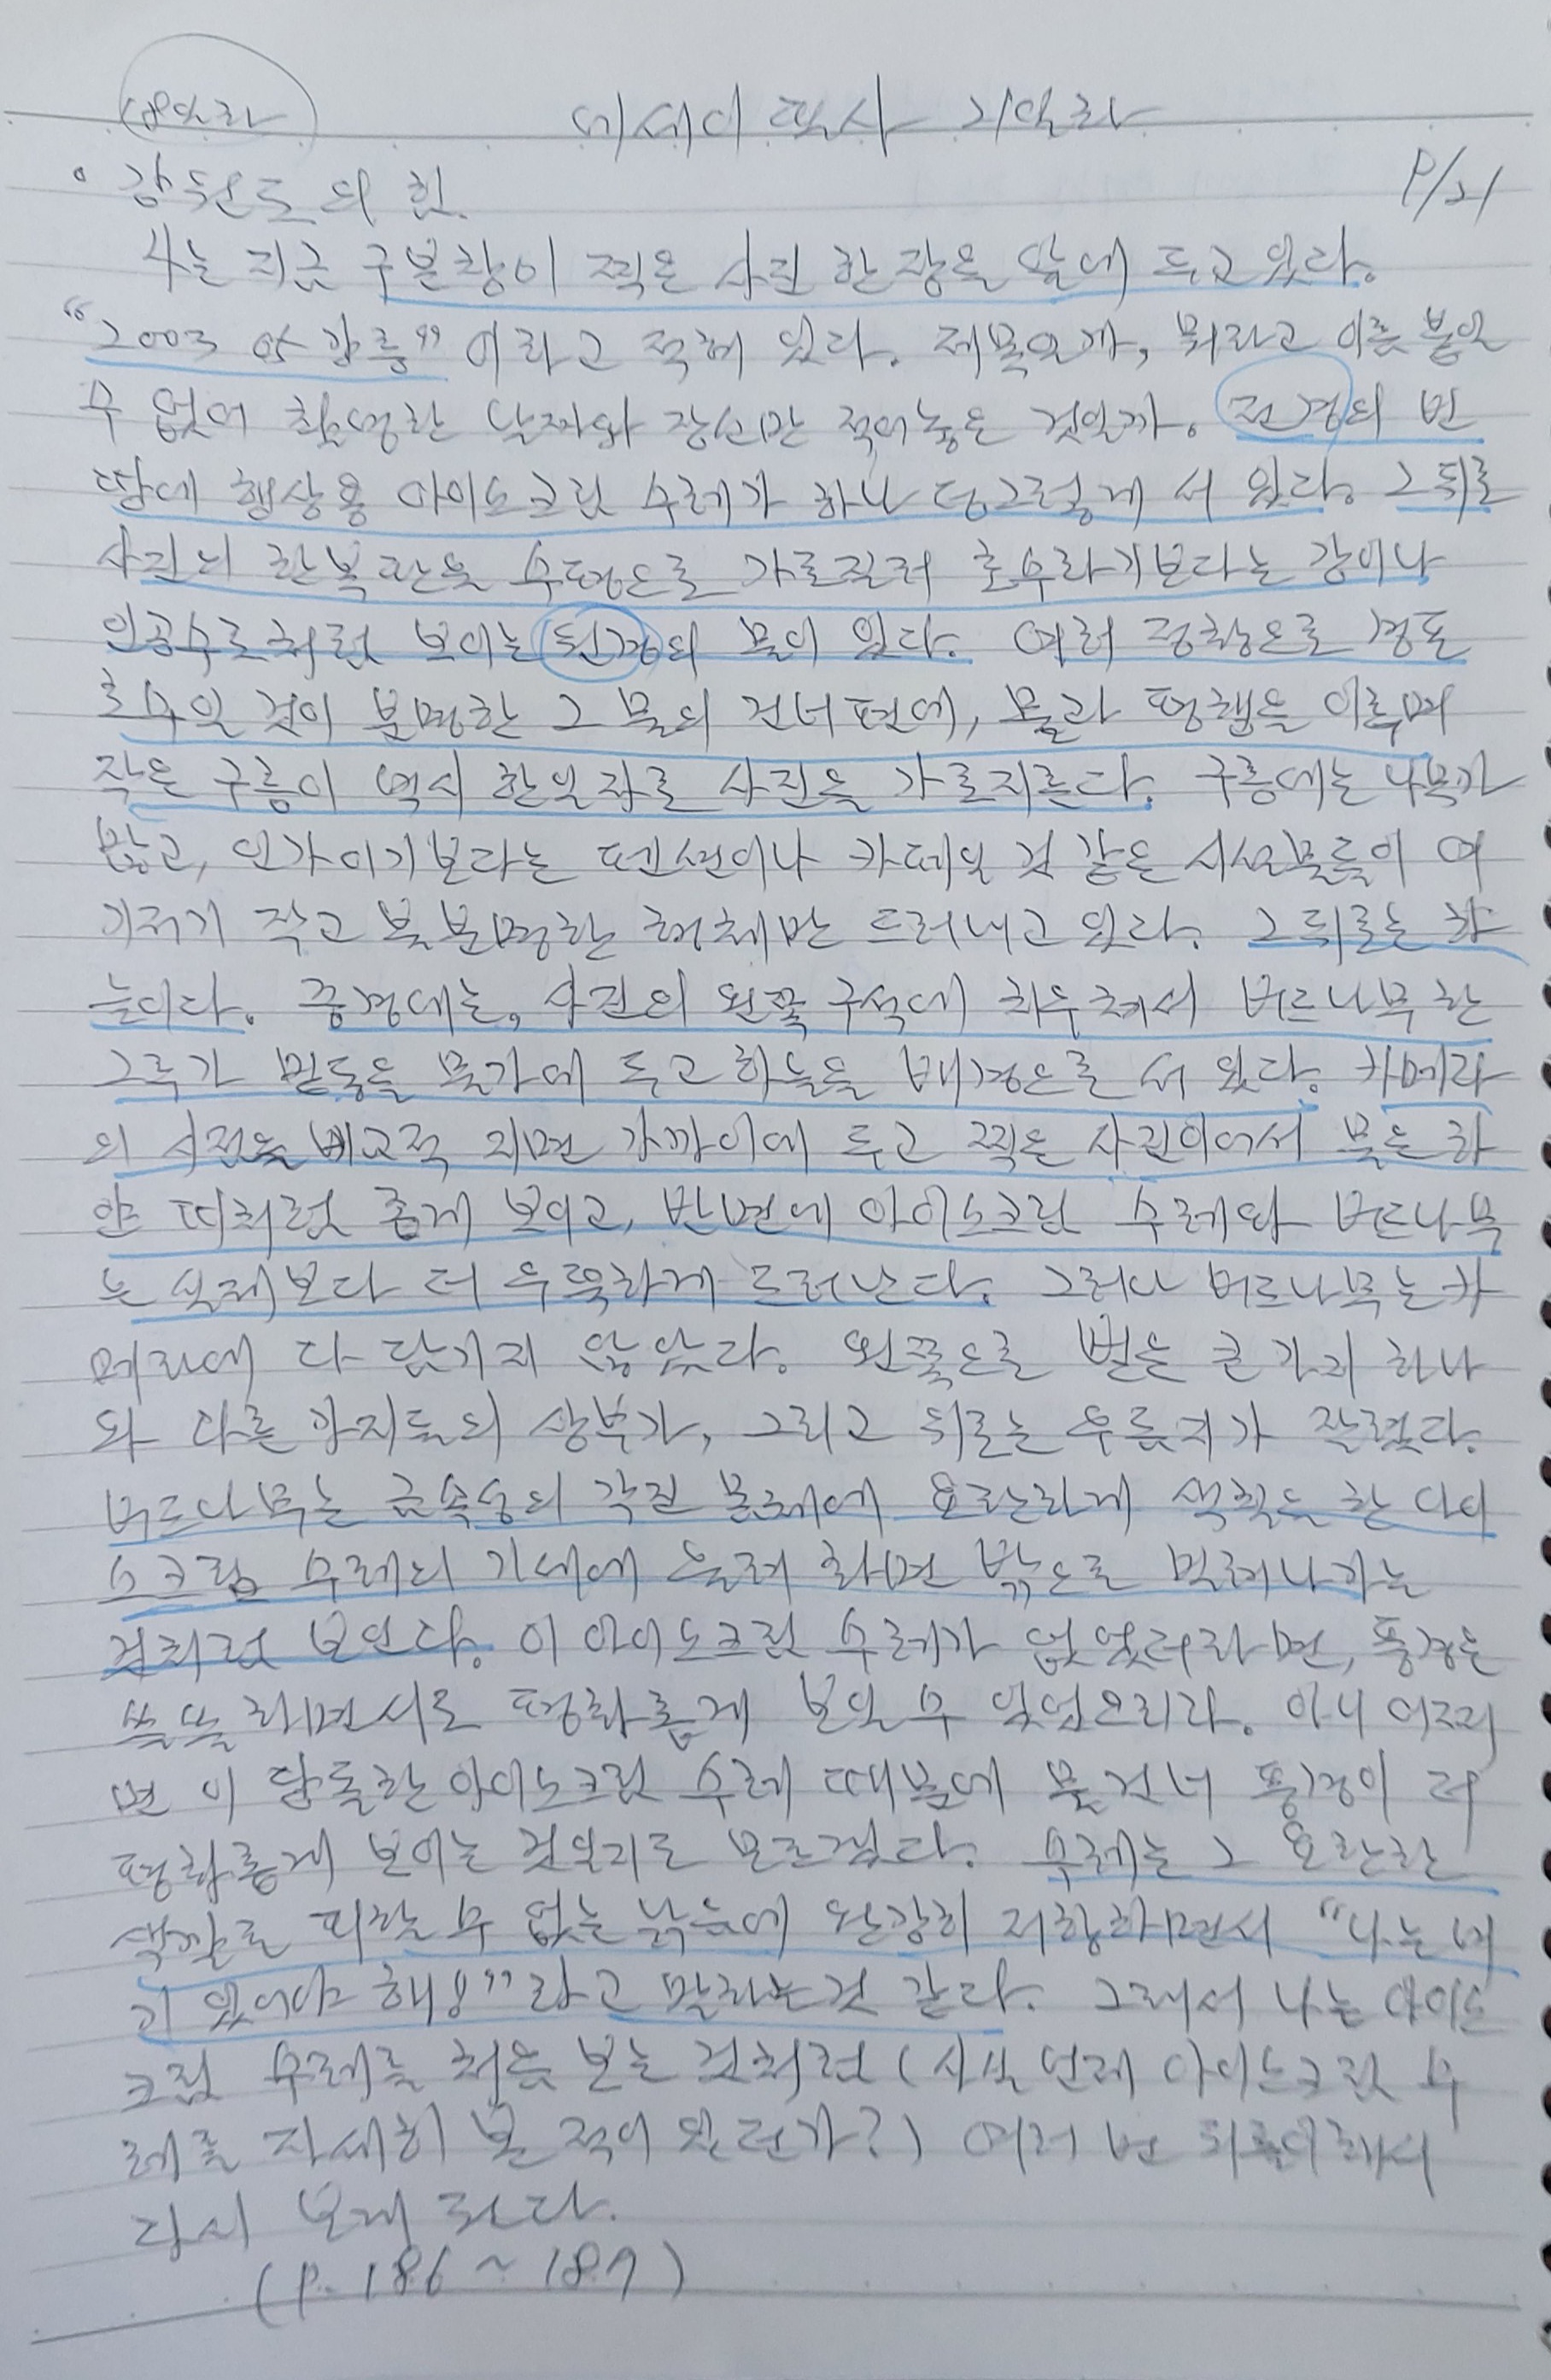 8일차 에세이 필사 기일차
• 강원도의 힘. P/21
나는 지금 구본창이 찍은 사진 한 장을 앞에 두고 있다.
"2003 강릉" 이라고 적혀 있다. 제목일까, 뭐라고 이름 붙일
수 없어 촬영한 날짜와 장소만 적어놓은 것일까. 전경의 빈
땅에 행상용 아이스크림 수레가 하나 덩그렇게 서 있다. 그 뒤로
사진의 한복판을 수평으로 가로질러 호수라기보다는 강이나
인공수로처럼 보이는 원경의 물이 있다. 여러 정황으로 경포
호수일 것이 분명한 그 물의 건너편에, 물과 평행을 이루며
작은 구릉이 역시 한일자로 사진을 가로지른다. 구릉에는 나무가
많고, 인가이기보다는 펜션이나 카페일 것 같은 시설물들이 여
기저기 작고 불분명한 형체만 드러내고 있다. 그 뒤로는 하
늘이다. 중경에는, 사진의 왼쪽 구석에 치우쳐서 버드나무 한
그루가 밑동을 물가에 두고 하늘을 배경으로 서 있다. 카메라
의 시점을 비교적 지면 가까이에 두고 찍은 사진이어서 물은 하
얀 띠처럼 좁게 보이고, 반면에 아이스크림 수레와 버드나무
는 실제보다 더 우뚝하게 드러난다. 그러나 버드나무는 카
메라에 다 담기지 않았다. 왼쪽으로 벋은 큰 가지 하나
와 다른 가지들의 상부가, 그리고 뒤로는 우듬지가 잘렸다.
버드나무는 금속성의 각진 몸체에 요란하게 색칠을 한 아이
스크림 수레의 기세에 눌려 화면 밖으로 밀려나가는
것처럼 보인다. 이 아이스크림 수레가 없었더라면, 풍경은
쓸쓸하면서도 평화롭게 보일 수 있었으리라. 아니 어쩌
면 이 당돌한 아이스크림 수레 때문에 물 건너 풍경이 더
평화롭게 보이는 것인지도 모르겠다. 수레는 그 요란한
색깔로 피할 수 없는 낡음에 완강히 저항하면서 "나는 여
기 있어야 해요"라고 말하는것 같다. 그래서 나는 아이스
크림 수레를 처음 보는 것처럼 (사실 언제 아이스크림 수
레를 자세히 본 적이 있던가?) 여러 번 되풀이해서
다시 보게 된다.
(p. 186 ~ 187)